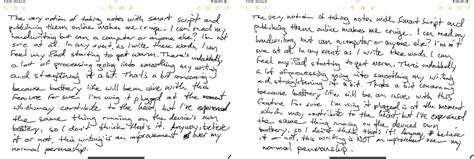 The very notion of taking notes with Smart Script and
publishing them online makes me cringe. I can read my
handwriting but can a computer or anyone else? I'm not
sure at all. In any event, as I write these words, I can
feel my iPad starting to get warm. There's undoubtedly
a lot of processing going into smoothing my writing
and straightening it a bit. That's a bit concerning
because battery life will be an issue with this
feature for sure. I'm using it plugged in at the moment
which may contribute to the heat, but I've experienced
the same thing running on the device's own
battery, so I don't think that's it. Anyway, believe
it or not, this writing is an improvement over my
normal penmanship.
The very notion of taking notes with Smart Script and
publishing them online makes me cringe. I can read my
handwriting but can a computer or anyone else? I'm not
sure at all. In any event as I write these words, I can
feel my iPad starting to get warm. There's undoubtedly
a lot of processing going into smoothing my writing
and straightening it a bit. That's a bit concerning
because battery life will be an issue with this
feature for sure. I'm using it plugged in at the moment
which may contribute to the heat, but I've experienced
the same thing running on the device's own
battery, so I don't think that's it. Anyway, believe
it or not, this writing is NOT an improvement over my
normal penmanship.